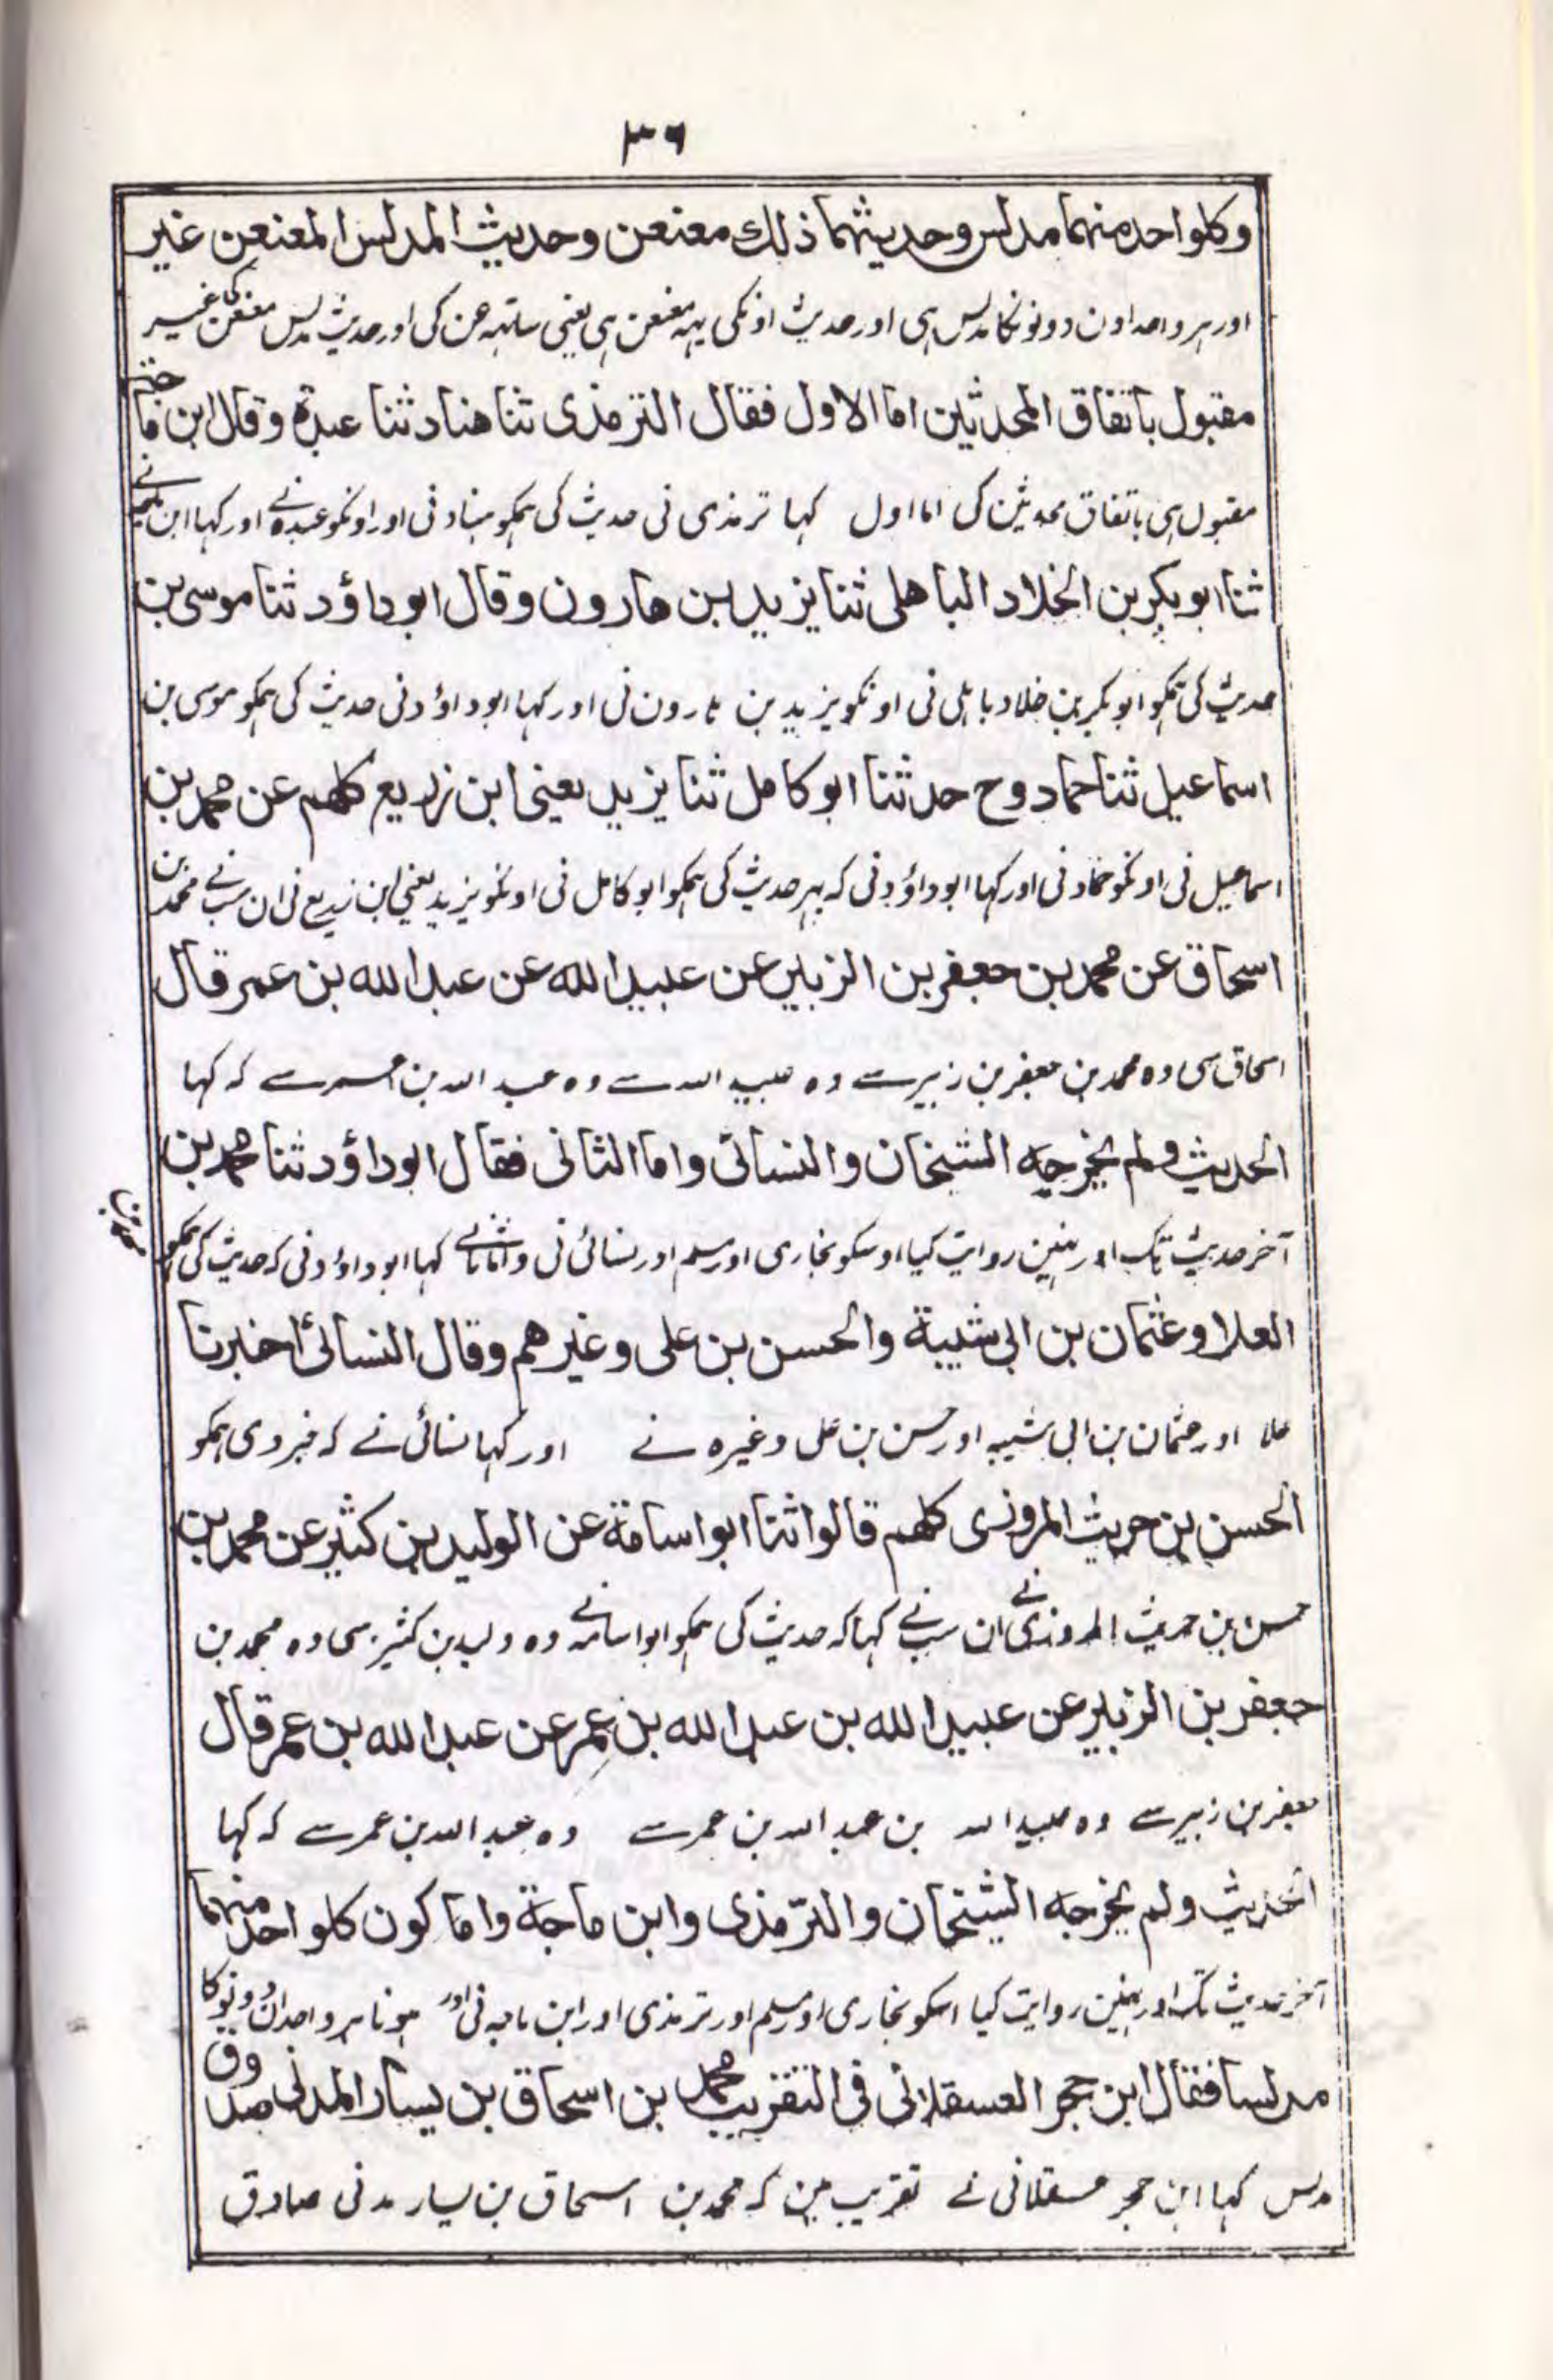 ٣٦
وكلواحد منهما مدلس وحديثهما ذلك معنعن وحديث المدلس المعنعن غير
اور ہر واحد اون دونونکا مدلس ہی اور حدیث اونکی یہہ معنعن ہی یعنی ساتہہ عن کی اور حدیث مدلس معنعن کی غیر
مقبول باتفاق المحدثين اما الاول فقال الترمذى ثنا هناد ثنا عبدة وقال ابن ماجة
مقبول ہی باتفاق محدثین کی اما اول کہا ترمذی نی حدیث کی ہمکو ہناد نی اور اونکو عبدہ نے اور کہا ابن ماجہ نے
ثنا ابو بكر بن الخلاد الباهلى ثنا يزيد بن هارون وقال ابو داؤد ثنا موسى بن
حدیث کی ہمکو ابو بکر بن خلاد باہلی نی اونکو یزید بن ہارون نی اور کہا ابو داؤد نی حدیث کی ہمکو موسی بن
اسماعيل ثنا حماد وح حدثنا ابو كامل ثنا يزيد يعنى ابن زريع كلهم عن محمد بن
اسماعیل نی اونکو حماد نی اور کہا ابو داؤد نی کہ پہر حدیث کی ہمکو ابو کامل نی اونکو یزید یعنی ابن زریع نی ان سب نے محمد بن
اسحاق عن محمد بن جعفر بن الزبير عن عبيد الله عن عبد الله بن عمر قال
اسحاق سی وہ محمد بن جعفر بن زبیر سے وہ عبید اللہ سے وہ عبد اللہ بن عمر سے کہ کہا
الحديث ولم يخرجه الشيخان والنسائى واما الثانى فقال ابو داؤد ثنا محمد بن
آخر حدیث تک اور نہین روایت کیا اوسکو بخاری اور مسلم اور نسائی نی واما ثانی کہا ابو داؤد نی کہ حدیث کی ہمکو محمد بن
العلا وعثمان بن ابى شيبة والحسن بن على وغيرهم وقال النسائى اخبرنا
علا اور عثمان بن ابی شیبہ اور حسن بن علی وغیرہ نے اور کہا نسائی نے کہ خبر دی ہمکو
الحسن بن حريث المروزى كلهم قالوا ثنا ابو اسامة عن الوليد بن كثير عن محمد بن
حسن بن حریث المروزی نے ان سب نے کہا کہ حدیث کی ہمکو ابو اسامہ نے وہ ولید بن کثیر سی وہ محمد بن
جعفر بن الزبير عن عبيد الله بن عبد الله بن عمر عن عبد الله بن عمر قال
جعفر بن زبیر سے وہ عبید اللہ بن عبد اللہ بن عمر سے وہ عبد اللہ بن عمر سے کہ کہا
الحديث ولم يخرجه الشيخان والترمذى وابن ماجة واما كون كلواحد منهما
آخر حدیث تک اور نہین روایت کیا اسکو بخاری اور مسلم اور ترمذی اور ابن ماجہ نی اور ہونا ہر واحد ان دونوکا
مدلسا فقال ابن حجر العسقلانى فى التقريب محمد بن اسحاق بن يسار المدنى صدوق
مدلس کہا ابن حجر عسقلانی نے تقریب مین کہ محمد بن اسحاق بن یسار مدنی صادق